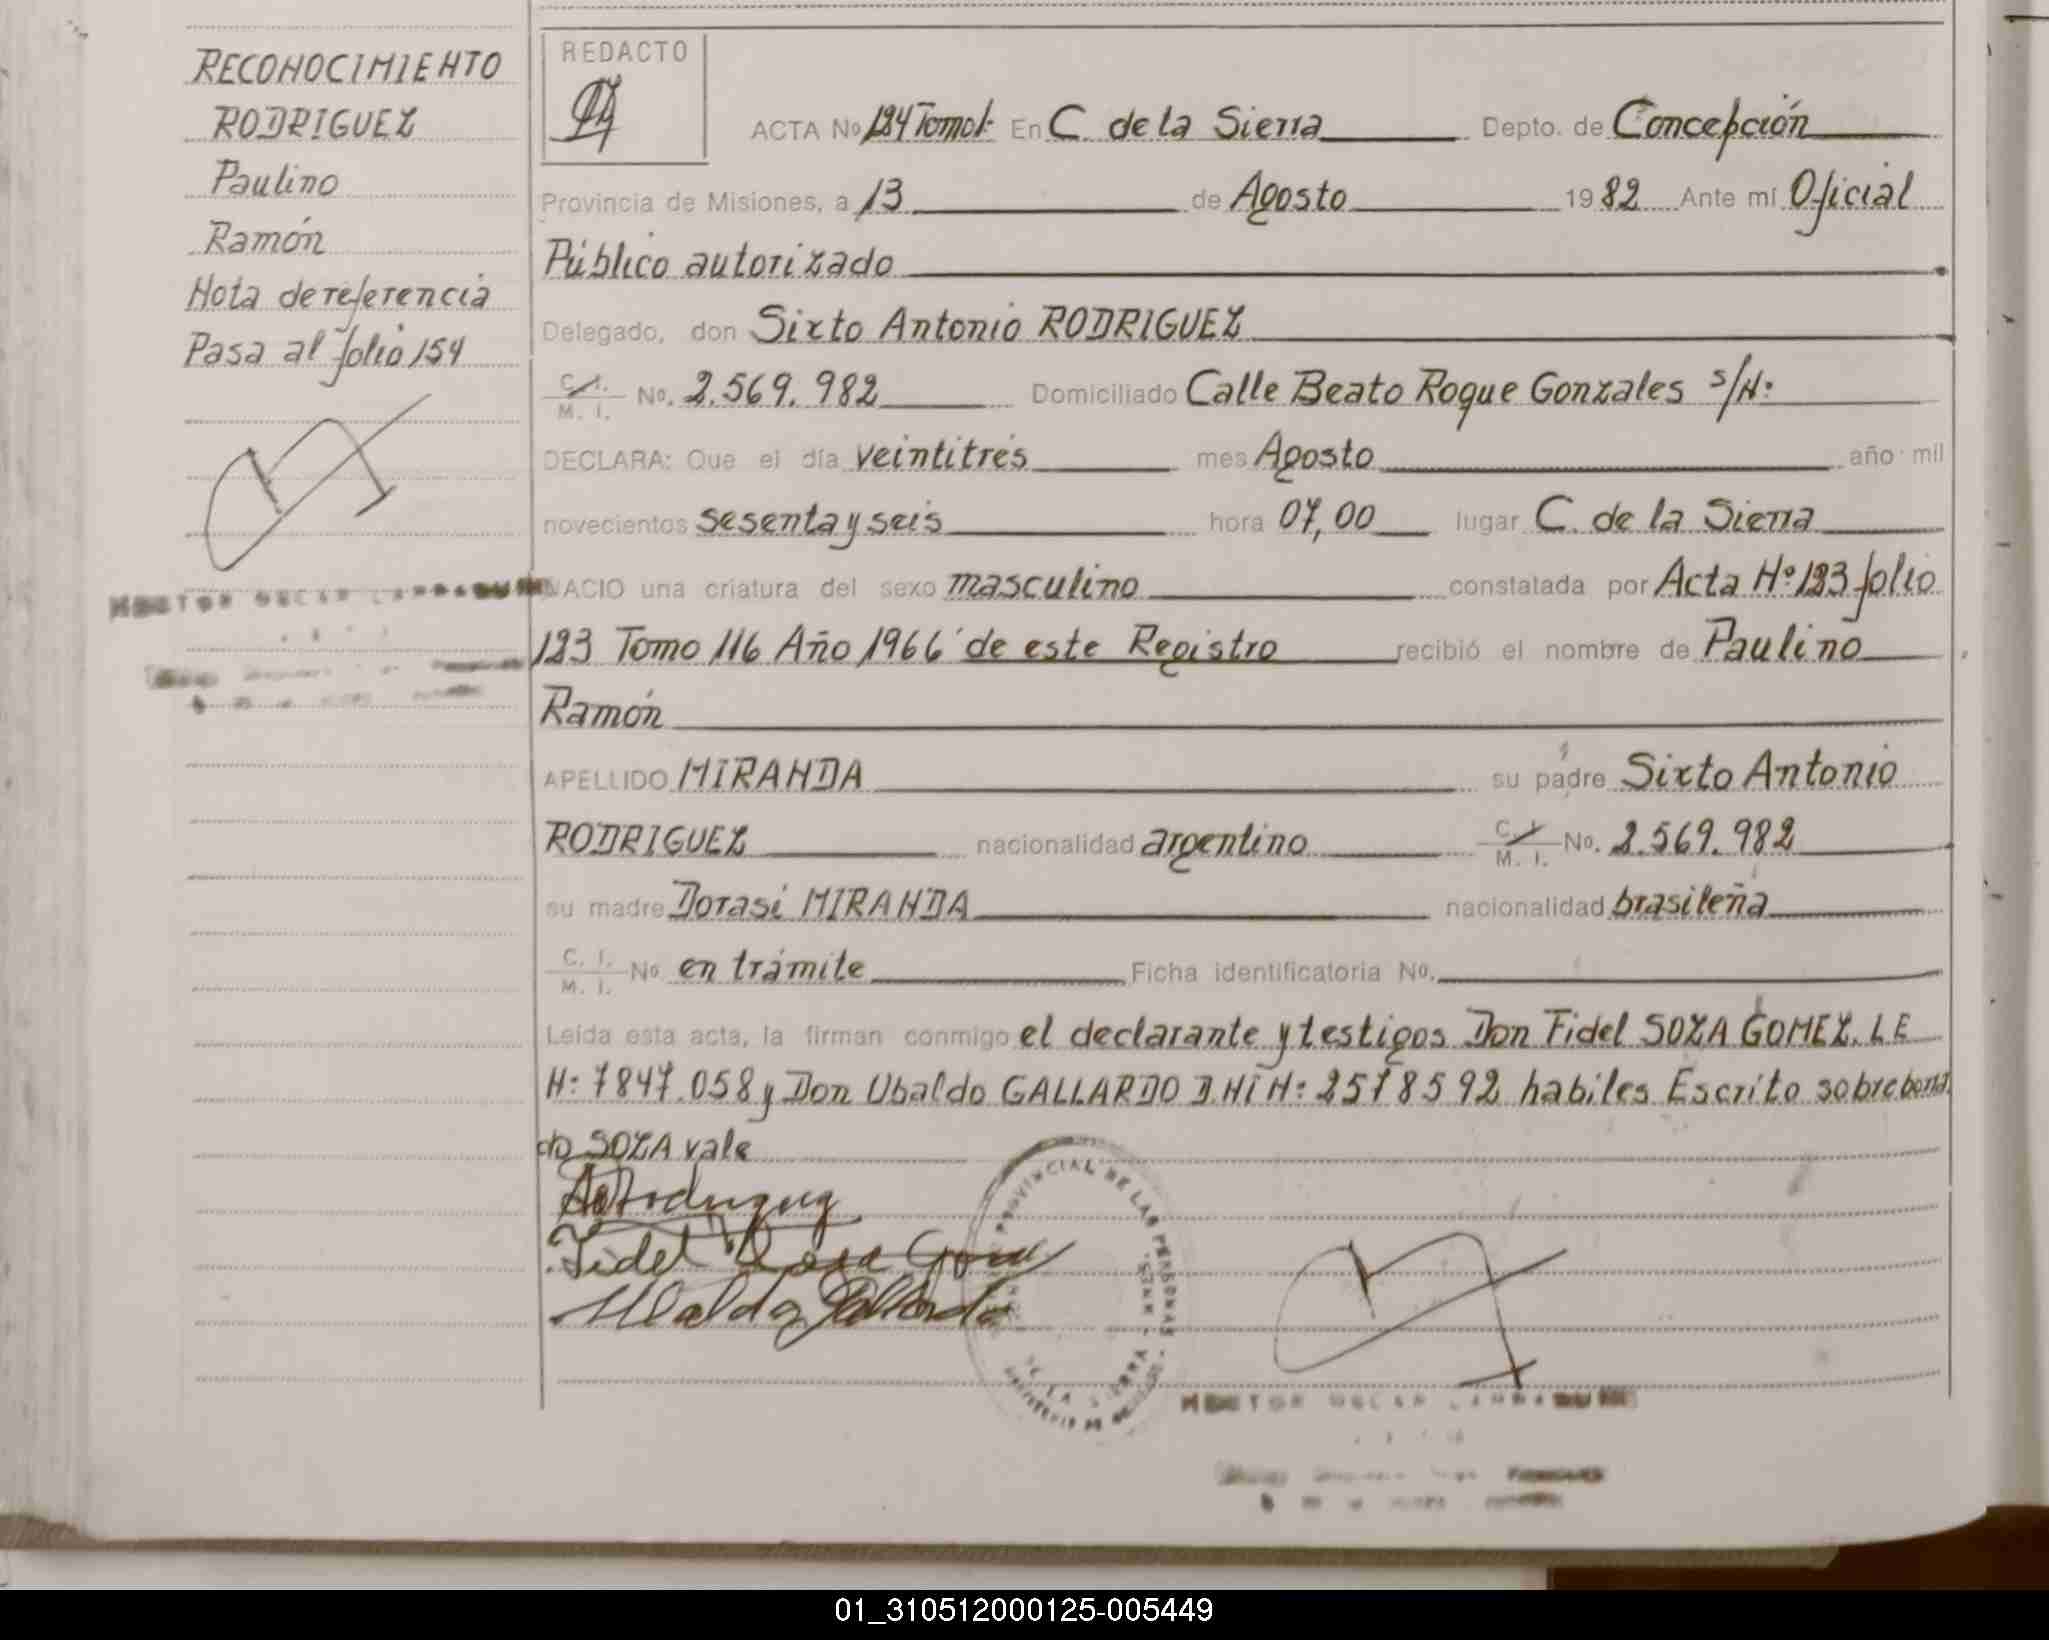 RECONOCIMIENTO
RODRIGUEZ
Paulino
Ramón
Nota de referencia
Pasa al folio 154
REDACTO
ACTA No 184 Tomo I En C. de la Sierra Depto. de Concepción
Provincia de Misiones, a 13 de Agosto 1982 Ante mí Oficial
Público autorizado
Delegado, don Sixto Antonio RODRIGUEZ
C. I. M. I. No. 2.569.982 Domiciliado Calle Beato Roque Gonzales s/N:
DECLARA: Que el día veintitrés mes Agosto año mil
novecientos sesenta y seis hora 07,00 lugar C. de la Sierra
NACIO una criatura del sexo masculino constatada por Acta Nº 183 folio
183 Tomo 116 Año 1966 de este Registro recibió el nombre de Paulino
Ramón
APELLIDO MIRANDA su padre Sixto Antonio
RODRIGUEZ nacionalidad argentino C. I. M. I. No. 2.569.982
su madre Dorasi MIRANDA nacionalidad brasileña
C. I. M. I. No en trámite Ficha identificatoria No.
Leída esta acta, la firman conmigo el declarante y testigos Don Fidel SOZA GOMEZ. L E
N: 7847.058 y Don Ubaldo GALLARDO D.N.I N: 2578592 habiles Escrito sobre borra
do SOZA vale
Fidel Soza Gomez
Ubaldo Gallardo
PROVINCIAL DE LAS PERSONAS
DE LA SIERRA
HECTOR OSCAR
HECTOR OSCAR
01_310512000125-005449